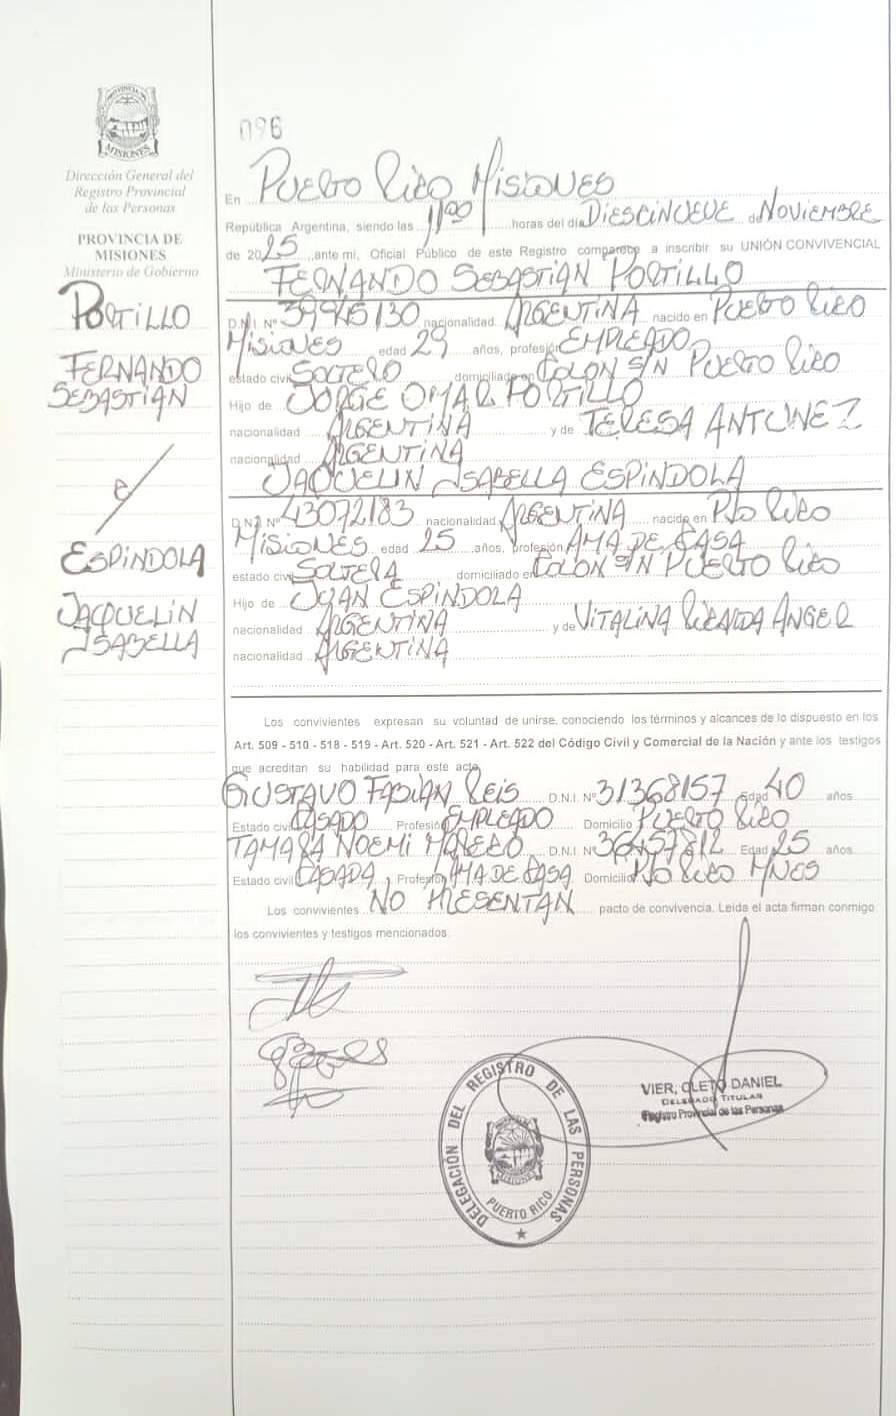 096
Dirección General del
Registro Provincial
de las Personas
PROVINCIA DE
MISIONES
Ministerio de Gobierno
PORTILLO
FERNANDO
SEBASTIAN
e/
ESPINDOLA
JAQUELIN
ISABELLA
En PUERTO RICO MISIONES
República Argentina, siendo las 11.00 horas del día DIESCINUEVE de NOVIEMBRE
de 2025 ante mi, Oficial Público de este Registro comparece a inscribir su UNIÓN CONVIVENCIAL
FERNANDO SEBASTIAN PORTILLO
D.N.I. N° 39945130 nacionalidad ARGENTINA nacido en PUERTO RICO
MISIONES edad 29 años, profesión EMPLEADO
estado civil SOLTERO domiciliado en COLON S/N PUERTO RICO
Hijo de JORGE OMAR PORTILLO
nacionalidad ARGENTINA y de TERESA ANTUNEZ
nacionalidad ARGENTINA
JAQUELIN ISABELLA ESPINDOLA
D.N.I. N° 43072183 nacionalidad ARGENTINA nacido en PTO RICO
MISIONES edad 25 años, profesión AMA DE CASA
estado civil SOLTERA domiciliado en COLON S/N PUERTO RICO
Hijo de JUAN ESPINDOLA
nacionalidad ARGENTINA y de VITALINA RICARDA ANGER
nacionalidad ARGENTINA
Los convivientes expresan su voluntad de unirse, conociendo los términos y alcances de lo dispuesto en los
Art. 509 - 510 - 518 - 519 - Art. 520 - Art. 521 - Art. 522 del Código Civil y Comercial de la Nación y ante los testigos
que acreditan su habilidad para este acto
GUSTAVO FABIAN REIS D.N.I. N° 31368157 Edad 40 años
Estado civil CASADO Profesión EMPLEADO Domicilio PUERTO RICO
TAMARA NOEMI D.N.I N° 36457812 Edad 25 años
Estado civil CASADA Profesión AMA DE CASA Domicilio PTO RICO MNES
Los convivientes NO PRESENTAN pacto de convivencia. Leida el acta firman conmigo
los convivientes y testigos mencionados.
VIER, CLETO DANIEL
DELEGADO TITULAR
Registro Provincial de las Personas
DELEGACIÓN DEL REGISTRO DE LAS PERSONAS
MISIONES
PUERTO RICO